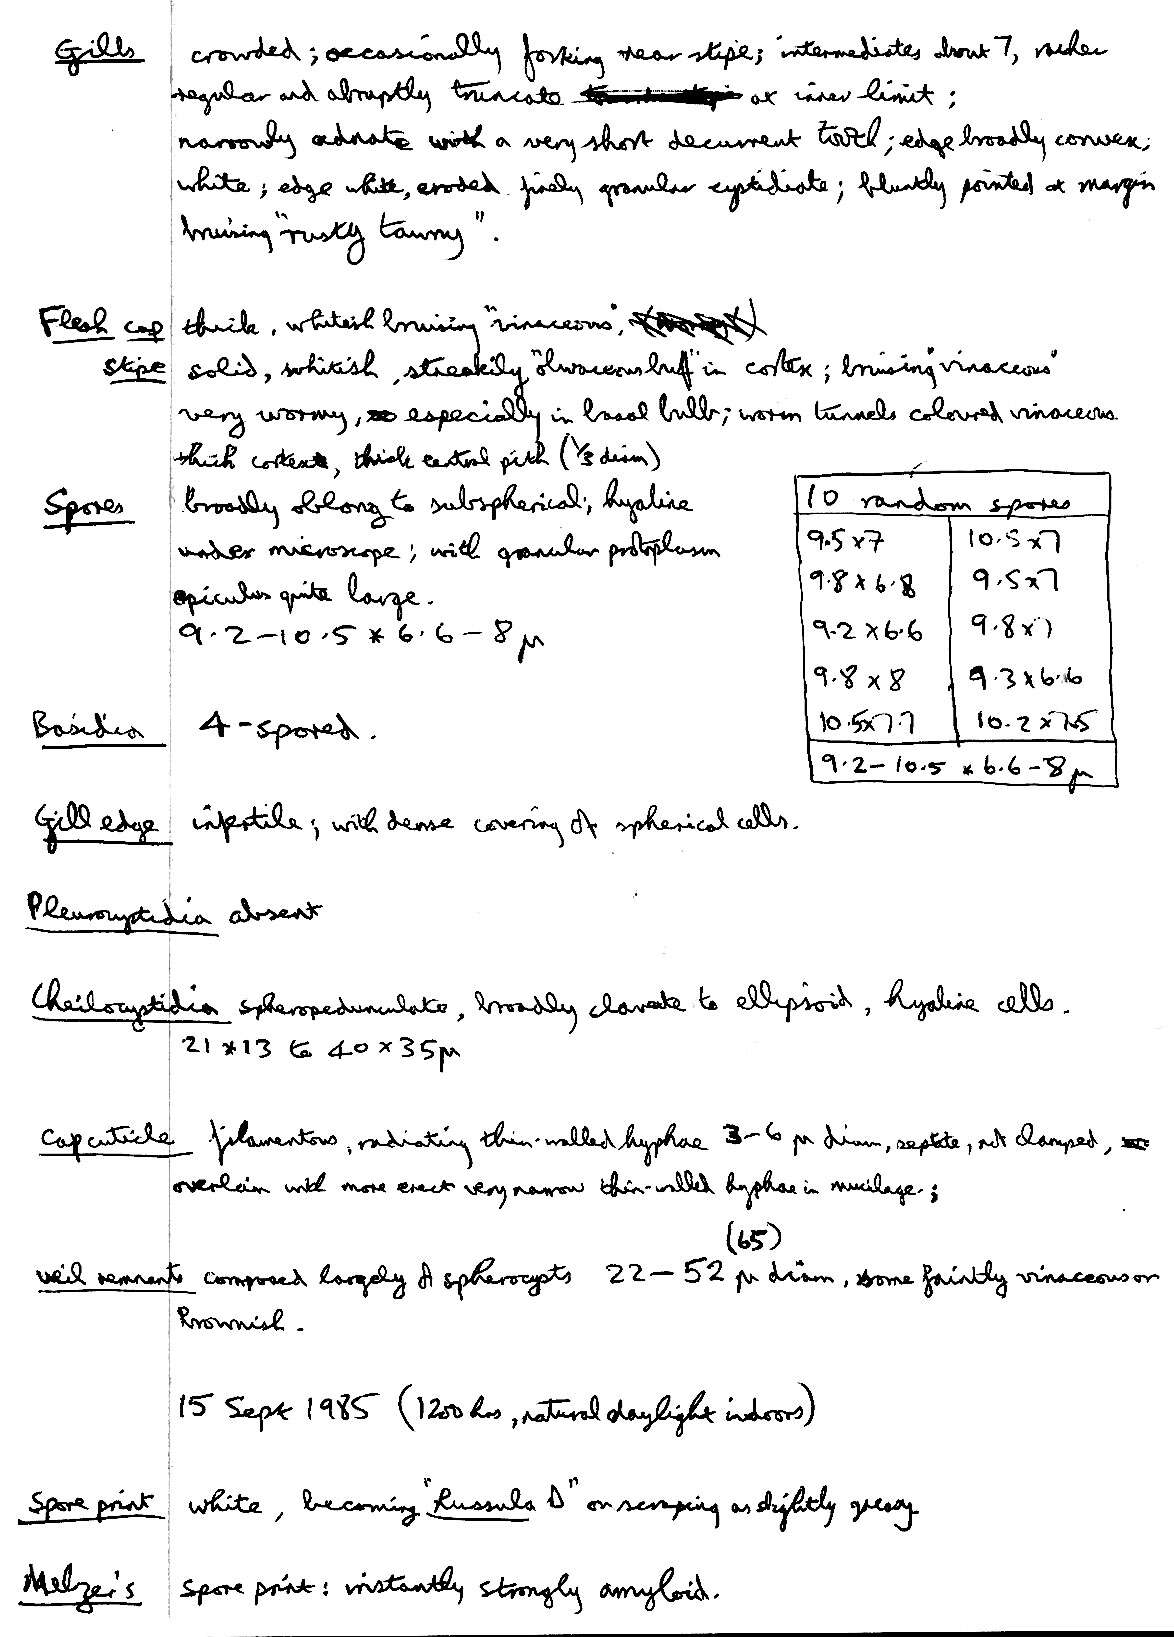 Gills crowded; occasionally forking near stipe; intermediates about 7, rather
regular and abruptly truncate at inner limit;
narrowly adnate with a very short decurrent tooth; edge broadly convex;
white; edge white, eroded finely granular cystidiate; bluntly pointed at margin
bruising "rusty tawny".
Flesh cap thick, whitish bruising "vinaceous",
stipe solid, whitish, streakily "olivaceous buff" in cortex; bruising "vinaceous"
very wormy, especially in basal bulb; worm tunnels coloured vinaceous
thick cortex, thick central pith (1/3 diam)
Spores broadly oblong to subspherical; hyaline
under microscope; with granular protoplasm
apiculus quite large.
9.2-10.5 x 6.6-8 μ
10 random spores
9.5 x 7 10.5 x 7
9.8 x 6.8 9.5 x 7
9.2 x 6.6 9.8 x 7
9.8 x 8 9.3 x 6.6
10.5 x 7.7 10.2 x 7.5
9.2-10.5 x 6.6-8 μ
Basidia 4-spored.
Gill edge infertile; with dense covering of spherical cells.
Pleurocystidia absent
Cheilocystidia spheropedunculate, broadly clavate to ellipsoid, hyaline cells.
21 x 13 to 40 x 35 μ
Cap cuticle filamentous, radiating thin-walled hyphae 3-6 μ diam, septate, not clamped,
overlain with more erect very narrow thin-walled hyphae in mucilage.;
(65)
veil remnants composed largely of spherocysts 22-52 μ diam, some faintly vinaceous or
brownish.
15 Sept 1985 (1200 hrs, natural daylight indoors)
Spore print white, becoming "Russula D" on scraping as slightly greasy
Melzer's spore print: instantly strongly amyloid.